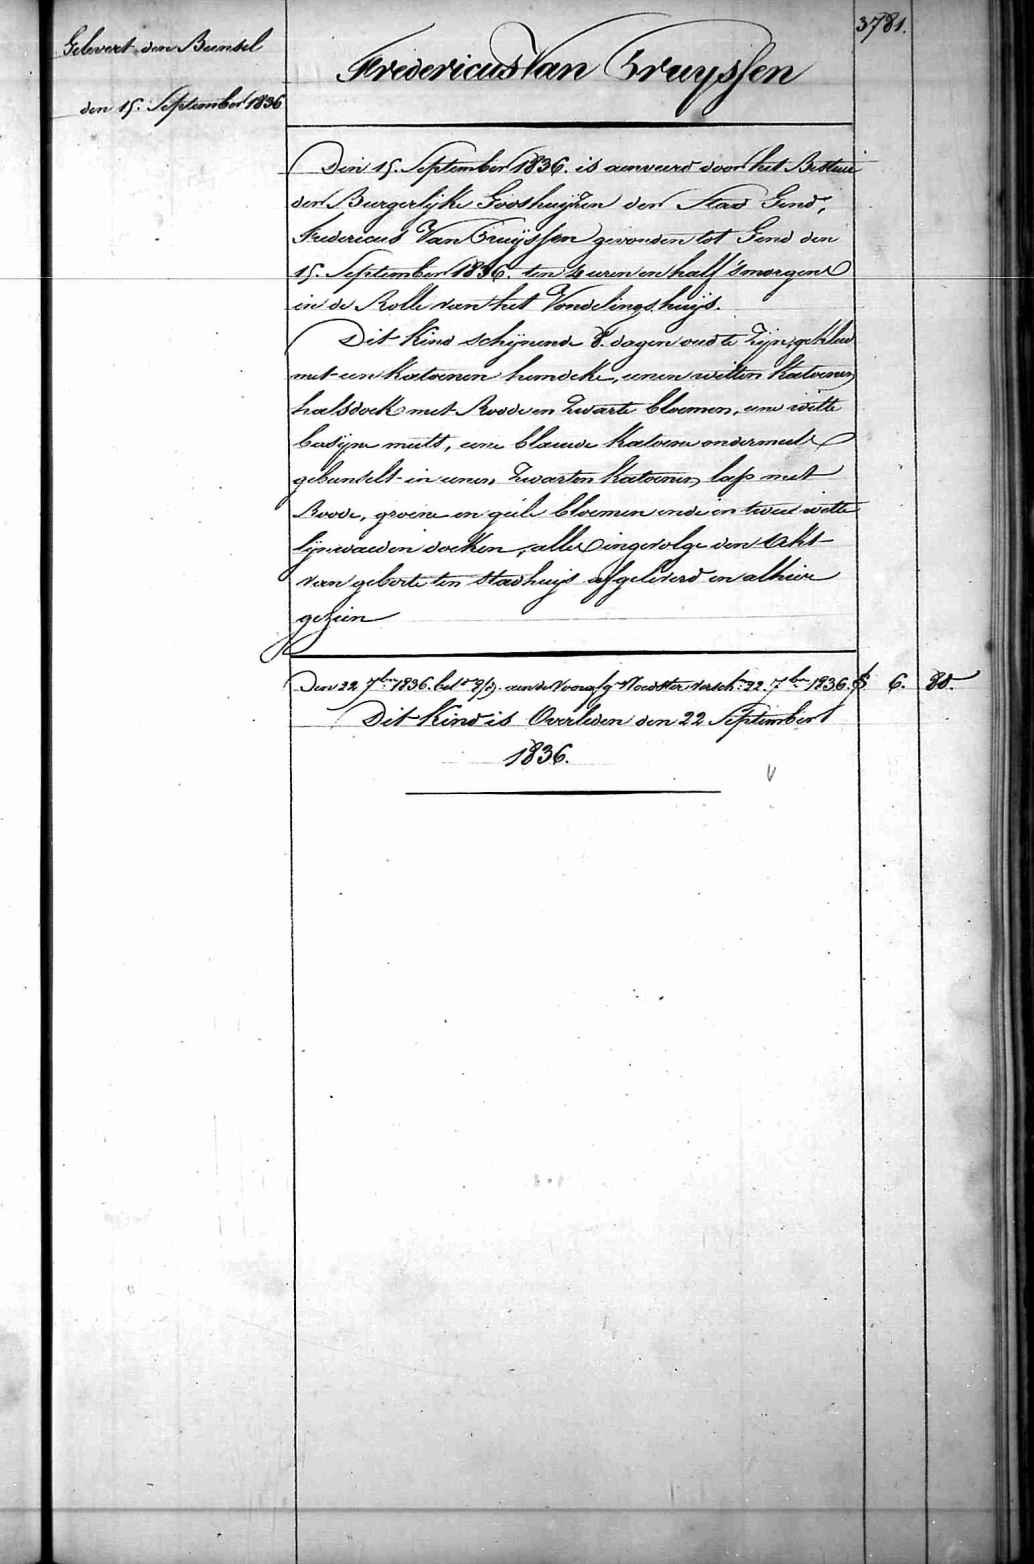 3781.
Gelevert den Bunsel
den 15. September 1836
Fredericus Van Cruyssen
Den 15. September 1836. is aenveerd door het Bestuur
der Burgerlijke Godshuijzen der Stad Gend,
Fredericus Van Cruijssen gevonden tot Gend den
15. September 1836. ten 4 uren en half 'smorgens
in de Rolle van het Vondelingshuijs.
Dit Kind schijnende 8. dagen oud te Zijn, gekleed
met een Katoenen hemdeke, eenen witten Katoenen
halsdoek met Roode en Zwarte bloemen, eene witte
basijne muts, eene blauwe Katoene ondermuts
gebunselt in eenen Zwarten Katoenen lap met
Roode, groene en geele bloemen ende in twee witte
lijnwaeden doeken, alles ingevolge den Akt
van geboorte ten Stadhuijs afgeleverd en alhier
gezien
Den 22 7ber 1836. aen de Voedster versch. 22. 7ber 1836. 6. 80.
Dit Kind is Overleden den 22 September
1836.